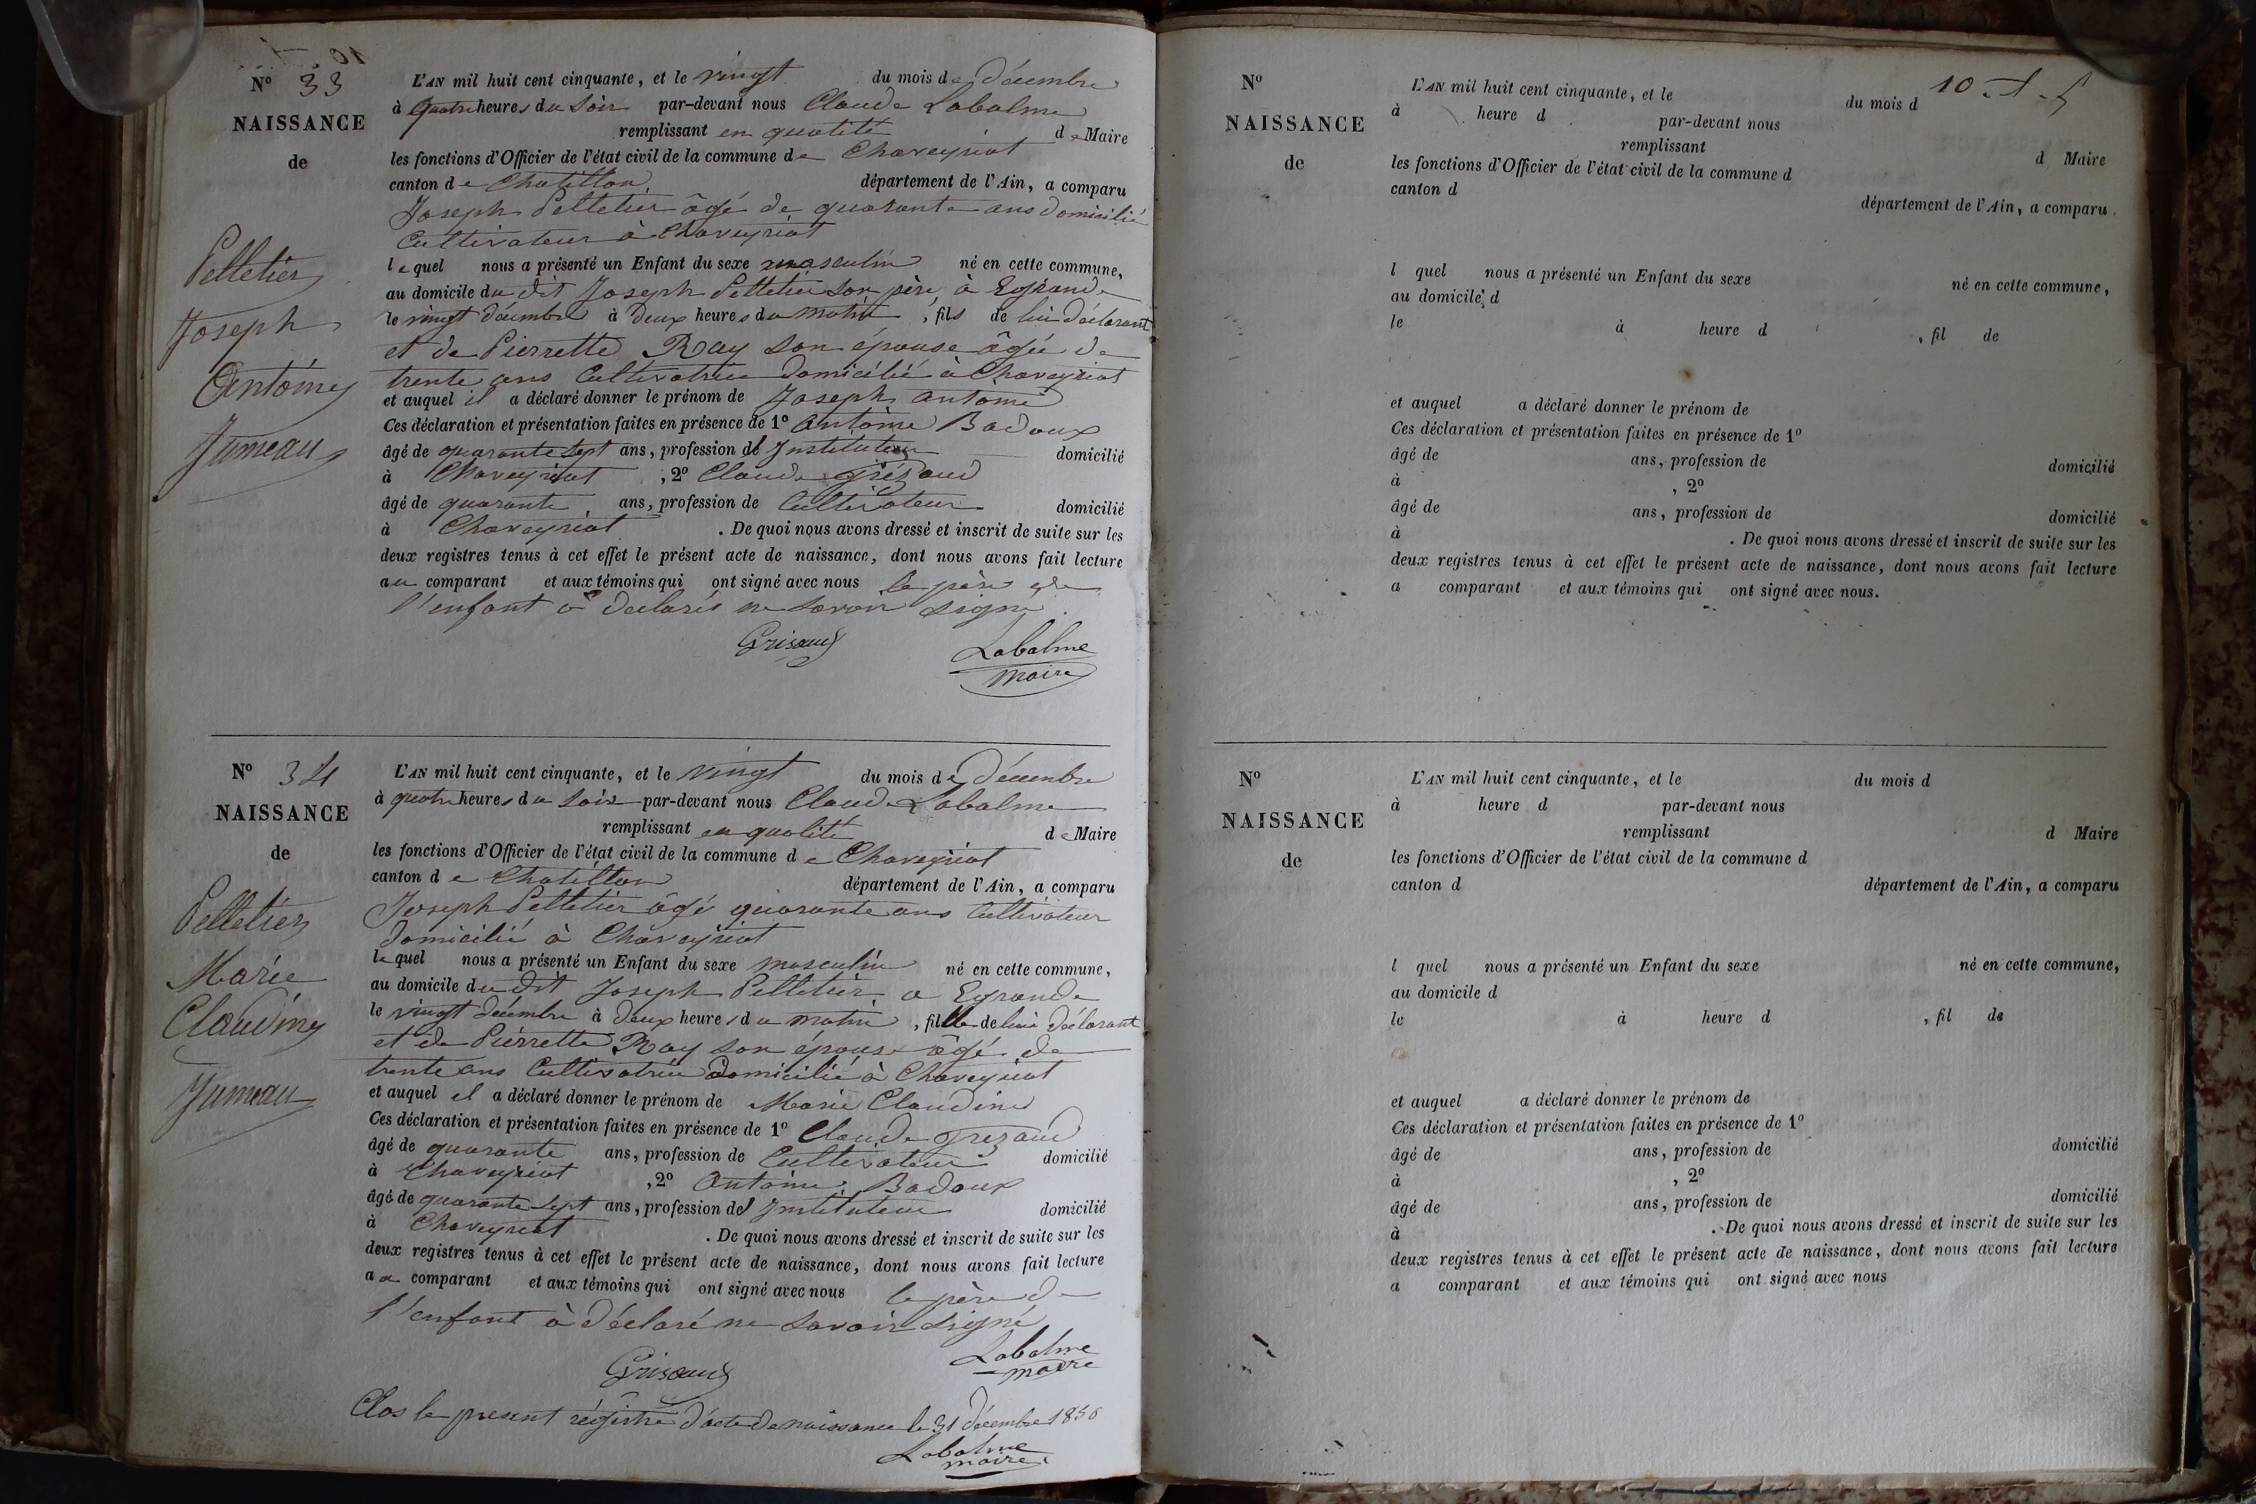 N° 33
NAISSANCE
de
Pelletier
Joseph
Antoine
Jumeau
L'AN mil huit cent cinquante, et le vingt du mois de décembre
à quatre heures du soir par-devant nous Claude Labalme
remplissant en qualité de Maire
les fonctions d'Officier de l'état civil de la commune de Chaveyriat
canton de Chatillon département de l'Ain, a comparu
Joseph Pelletier âgé de quarante ans domicilié
Cultivateur à Chaveyriat
lequel nous a présenté un Enfant du sexe masculin né en cette commune,
au domicile du dit Joseph Pelletier son père à Egrande
le vingt décembre à deux heures du matin, fils de lui déclarant
et de Pierrette Ray son épouse âgée de
trente ans Cultivatrice domicilié à Chaveyriat
et auquel il a déclaré donner le prénom de Joseph antoine
Ces déclaration et présentation faites en présence de 1° antoine Badoux
âgé de quarante sept ans, profession d'Instituteur domicilié
à Chaveyriat, 2° Claude Grézaud
âgé de quarante ans, profession de Cultivateur domicilié
à Chaveyriat. De quoi nous avons dressé et inscrit de suite sur les
deux registres tenus à cet effet le présent acte de naissance, dont nous avons fait lecture
au comparant et aux témoins qui ont signé avec nous le père de
l'enfant a déclaré ne savoir signé
Grisaud Labalme
maire
N° 34
NAISSANCE
de
Pelletier
Marie
Claudine
Jumeau
L'AN mil huit cent cinquante, et le vingt du mois de décembre
à quatre heures du soir par-devant nous Claude Labalme
remplissant en qualité de Maire
les fonctions d'Officier de l'état civil de la commune de Chaveyriat
canton de Chatillon département de l'Ain, a comparu
Joseph Pelletier âgé quarante ans Cultivateur
domicilié à Chaveyriat
lequel nous a présenté un Enfant du sexe masculin né en cette commune,
au domicile du dit Joseph Pelletier a Egrande
le vingt décembre à deux heures du matin, fille de lui déclarant
et de Pierrette Ray son épouse âgé de
trente ans Cultivatrice domicilié à Chaveyriat
et auquel il a déclaré donner le prénom de Marie Claudine
Ces déclaration et présentation faites en présence de 1° Claude Grezaud
âgé de quarante ans, profession de Cultivateur domicilié
à Chaveyriat, 2° Antoine Badoux
âgé de quarante sept ans, profession d'Instituteur domicilié
à Chaveyriat. De quoi nous avons dressé et inscrit de suite sur les
deux registres tenus à cet effet le présent acte de naissance, dont nous avons fait lecture
au comparant et aux témoins qui ont signé avec nous le père de
l'enfant à déclaré ne savoir signé
Grisaud Labalme
maire
Clos le present régistre d'acte de naissance le 31 décembre 1850
Labalme
maire
N°
NAISSANCE
de
10
L'AN mil huit cent cinquante, et le du mois d
à heure d par-devant nous
remplissant d Maire
les fonctions d'Officier de l'état civil de la commune d
canton d département de l'Ain, a comparu
l quel nous a présenté un Enfant du sexe né en cette commune,
au domicile d
le à heure d , fil de
et auquel a déclaré donner le prénom de
Ces déclaration et présentation faites en présence de 1°
âgé de ans, profession de domicilié
à , 2°
âgé de ans, profession de domicilié
à . De quoi nous avons dressé et inscrit de suite sur les
deux registres tenus à cet effet le présent acte de naissance, dont nous avons fait lecture
a comparant et aux témoins qui ont signé avec nous.
N°
NAISSANCE
de
L'AN mil huit cent cinquante, et le du mois d
à heure d par-devant nous
remplissant d Maire
les fonctions d'Officier de l'état civil de la commune d
canton d département de l'Ain, a comparu
l quel nous a présenté un Enfant du sexe né en cette commune,
au domicile d
le à heure d , fil de
et auquel a déclaré donner le prénom de
Ces déclaration et présentation faites en présence de 1°
âgé de ans, profession de domicilié
à , 2°
âgé de ans, profession de domicilié
à . De quoi nous avons dressé et inscrit de suite sur les
deux registres tenus à cet effet le présent acte de naissance, dont nous avons fait lecture
a comparant et aux témoins qui ont signé avec nous